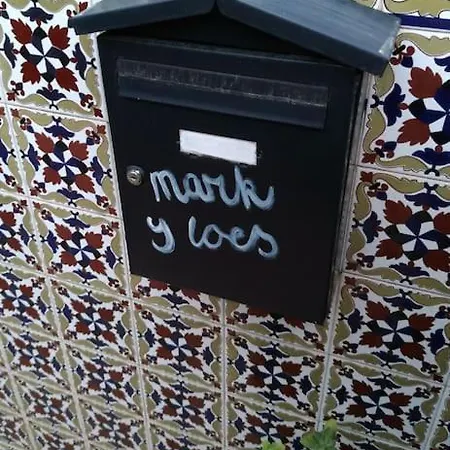 mark
y loes